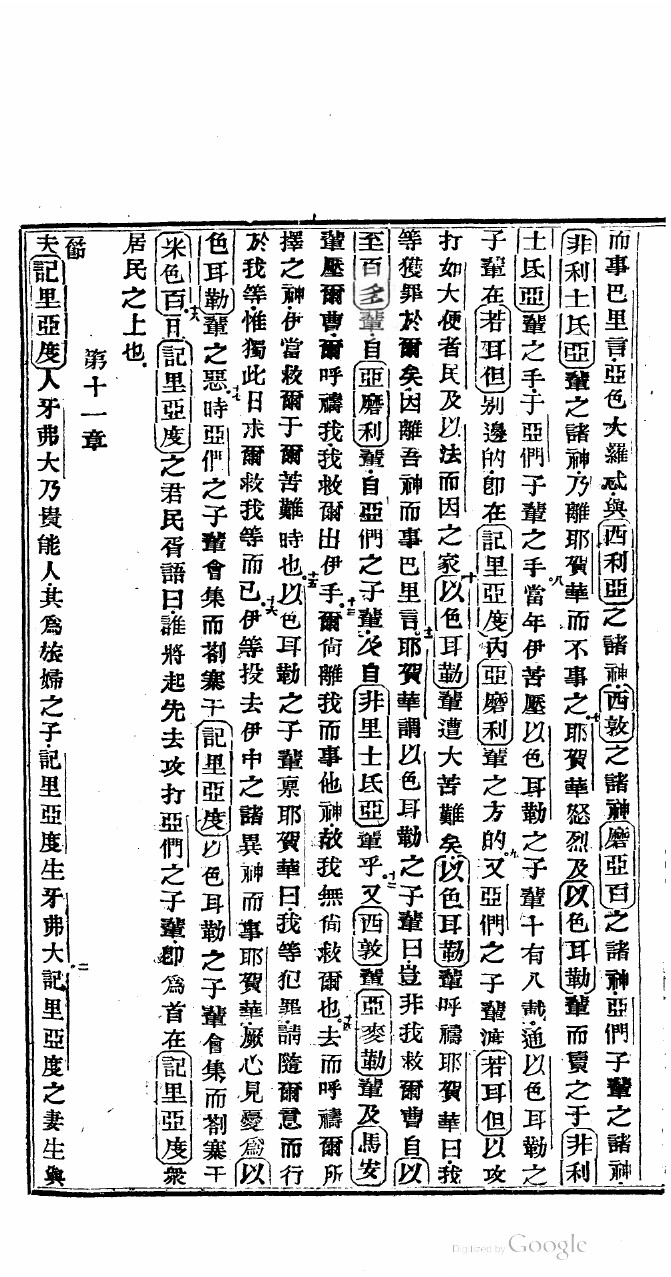 而事巴里言亞色大羅忒與西利亞之諸神西敦之諸神磨亞百之諸神亞們子輩之諸神
非利士氏亞輩之諸神乃離耶賀華而不事之七耶賀華怒烈及以色耳勒輩而賣之于非利
士氏亞輩之手于亞們子輩之手八當年伊苦壓以色耳勒之子輩十有八載通以色耳勒之
子輩在若耳但別邊的卽在記里亞度內亞磨利輩之方的九又亞們之子輩渡若耳但以攻
打如大便者民及以法而因之家以色耳勒輩遭大苦難矣十以色耳勒輩呼禱耶賀華曰我
等獲罪於爾矣因離吾神而事巴里言十一耶賀華謂以色耳勒之子輩曰豈非我救爾曹自以
至百多輩自亞磨利輩自亞們之子輩及自非里士氏亞輩乎十二又西敦輩亞麥勒輩及馬安
輩壓爾曹爾呼禱我我救爾出伊手十三爾尙離我而事他神故我無尙救爾也十四去而呼禱爾所
擇之神伊當救爾于爾苦難時也十五以色耳勒之子輩稟耶賀華曰我等犯罪請隨爾意而行
於我等惟獨此日求爾救我等而已十六伊等投去伊中之諸異神而事耶賀華厥心見憂爲以
色耳勒輩之惡時十七亞們之子輩會集而劄寨于記里亞度以色耳勒之子輩會集而劄寨于
米色百十八記里亞度之君民胥語曰誰將起先去攻打亞們之子輩卽爲首在記里亞度衆
居民之上也
第十一章
一節夫記里亞度人牙弗大乃貴能人其爲旅婦之子記里亞度生牙弗大二記里亞度之妻生與
Digitized by Google